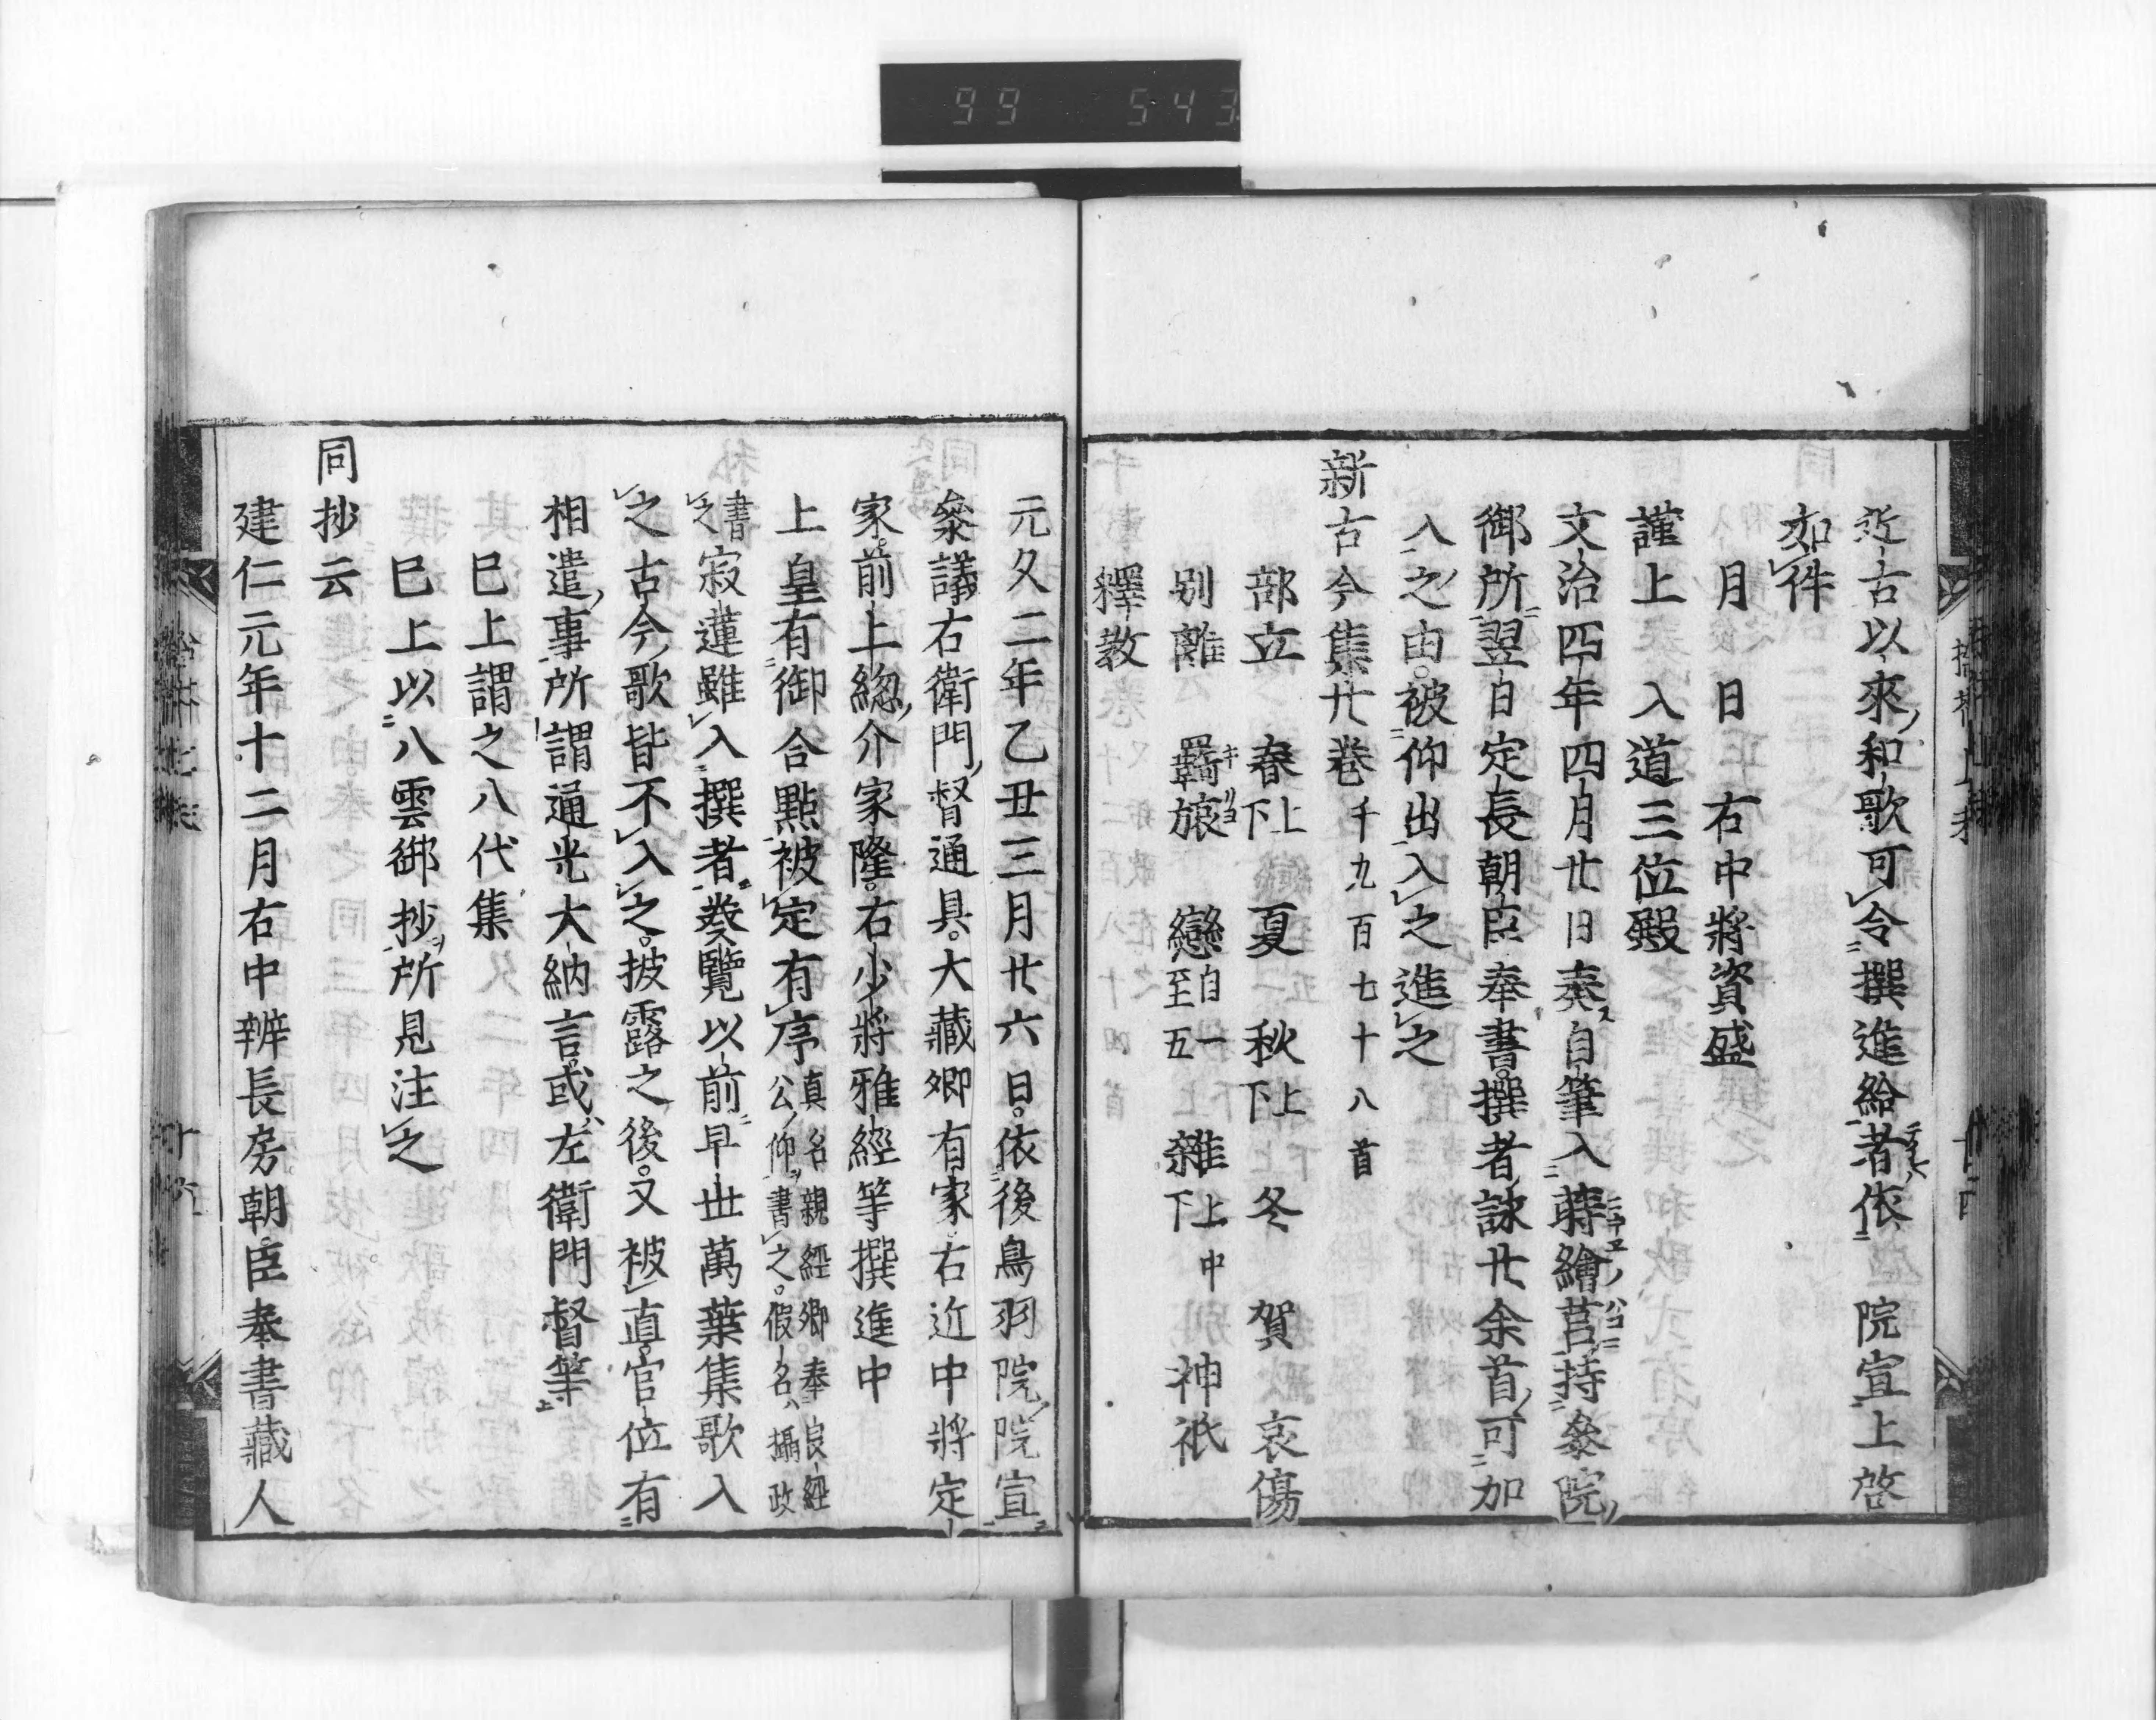 近古以來和歌可令撰進給者依　院宣上啓
如件
月　日　右中將資盛
謹上　入道三位殿
文治四年四月廿日奏自筆入蒔繪莒持參院
御所翌日定長朝臣奉書撰者詠廿余首可加
入之由被仰出入之進之
新古今集廿巻千九百七十八首
部立　春上下　夏　秋上下　冬　賀　哀傷
別離　羇旅　戀自一至五　雜上中下　神祇
釋教
元久二年乙丑三月廿六日依後鳥羽院院宣
參議右衛門督通具大藏卿有家右近中將定
家前上総介家隆右少將雅經等撰進中
上皇有御合點被定有序真名親經卿奉良經公仰書之假名攝政
書之寂蓮雖入撰者奏覽以前早世萬葉集歌入
之古今歌皆不入之披露之後又被直官位有
相違事所謂通光大納言或左衛門督等
巳上謂之八代集
巳上以八雲御抄所見注之
同抄云
建仁元年十二月右中辨長房朝臣奉書藏人
99 543